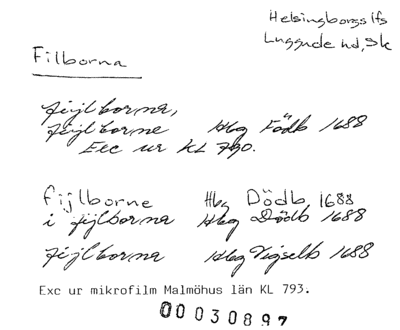 Helsingborgs lfs
Luggude hd, Sk
Filborna
fijlborna,
fijlborne Hbg Födb 1688
Exc ur KL 790.
fijlborne Hbg Dödb 1688
i fijlborna Hbg Dödb 1688
fijlborna Hbg Vigselb 1688
Exc ur mikrofilm Malmöhus län KL 793.
00030897